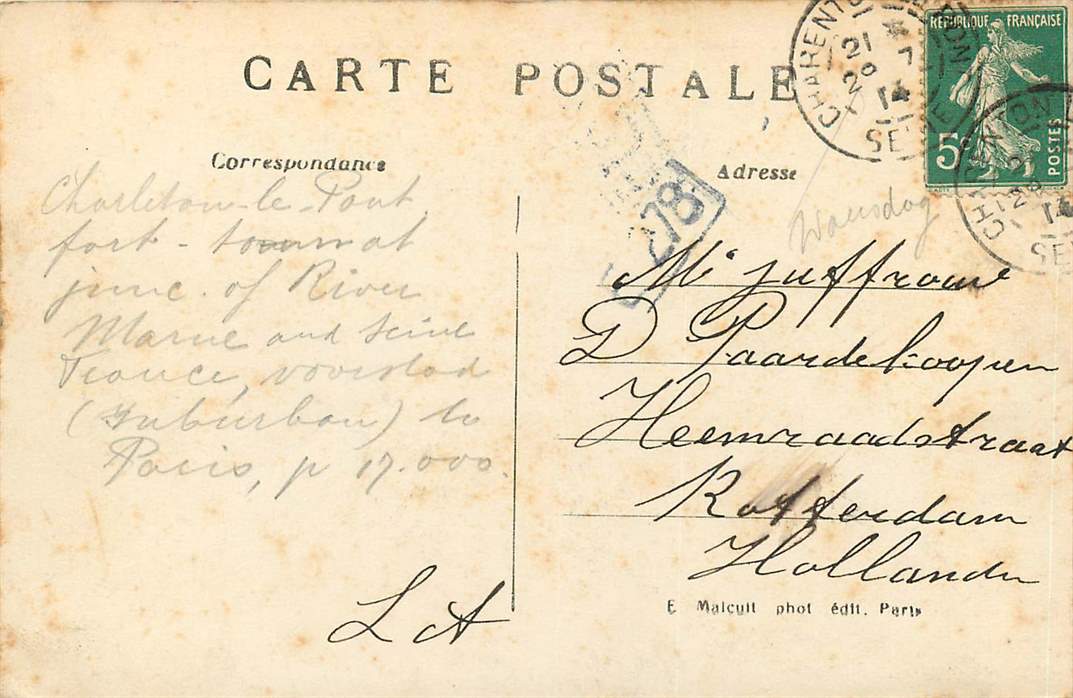 CARTE POSTALE
RÉPUBLIQUE FRANÇAISE
5c
POSTES
CHARENTON
21 *
29 7
14
SEINE
CHARENTON
21
29
14
SEINE
278
Correspondance
Adresse
Woensdag
Charleton-le-Pont
fort - town at
junc. of River
Marne and Seine
France, voorstad
(suburban) to
Paris, p 17.000.
L A
Mejuffrouw
D Paardekoopen
Heemraadstraat
Rotterdam
Holland
E Malcuit phot édit. Paris